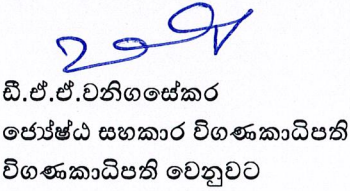 ඩී.ඒ.ඒ.වනිගසේකර
ජ්‍යේෂ්ඨ සහකාර විගණකාධිපති
විගණකාධිපති වෙනුවට